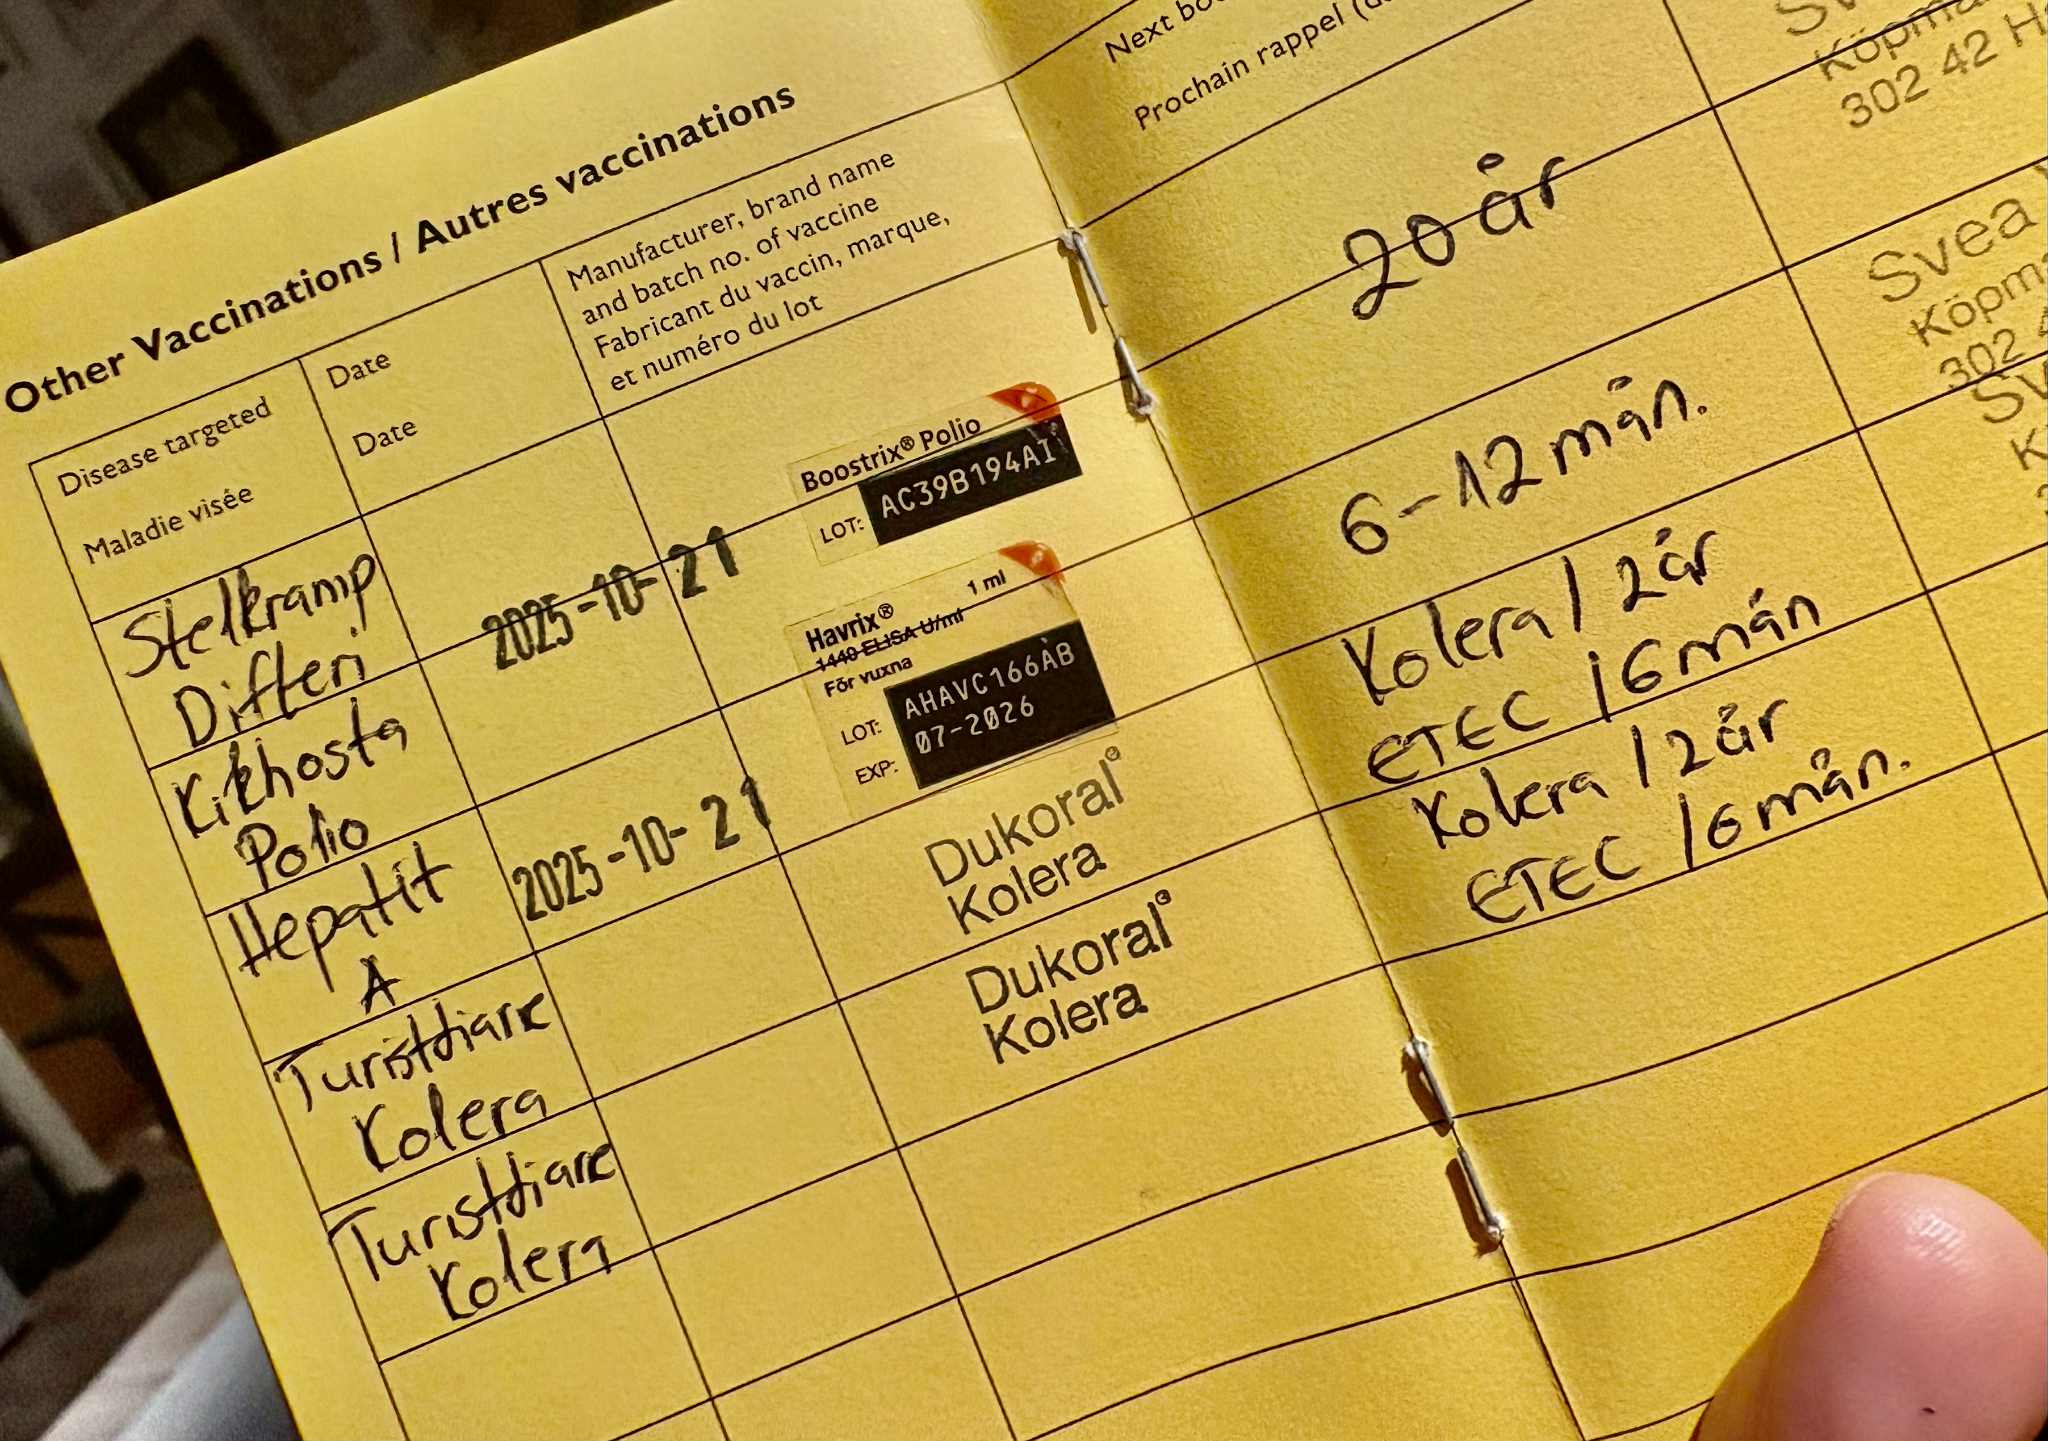 Other Vaccinations / Autres vaccinations
Disease targeted
Maladie visée
Date
Date
Manufacturer, brand name
and batch no. of vaccine
Fabricant du vaccin, marque,
et numéro du lot
Next
Prochain rappel
Stelkramp
Difteri
Kikhosta
Polio
2025-10-21
Boostrix® Polio
LOT: AC39B194AI
20 år
Köpma
302 42 H
Hepatit
A
2025-10-21
Havrix®
1 ml
1440 ELISA U/ml
För vuxna
LOT: AHAVC166AB
EXP: 07-2026
6-12 mån.
Svea
Köpm
302 4
Turistdiare
Kolera
Dukoral®
Kolera
Kolera / 2 år
ETEC / 6 mån
Turistdiare
Kolera
Dukoral®
Kolera
Kolera / 2 år
ETEC / 6 mån.